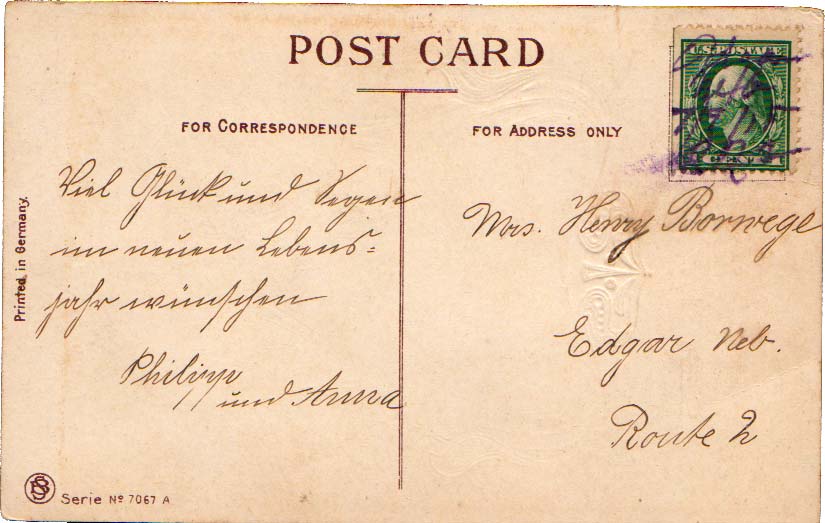 POST CARD
FOR CORRESPONDENCE
FOR ADDRESS ONLY
U.S. POSTAGE
Viel Glück und Segen
im neuen Lebens-
jahr wünschen
Philipp
und Anna
Mrs. Henry Borwege
Edgar Neb.
Route 2
Printed in Germany.
Serie No 7067 A